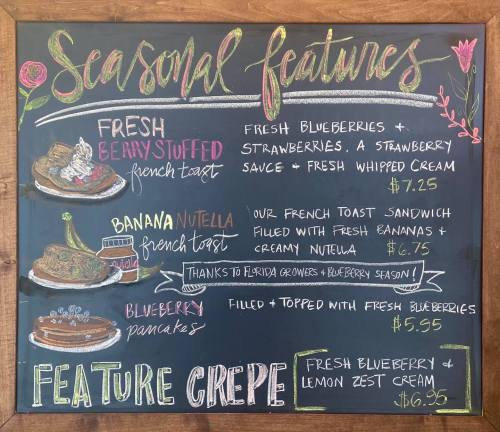 Seasonal features
FRESH
BERRY STUFFED
french toast
FRESH BLUEBERRIES +
STRAWBERRIES, A STRAWBERRY
SAUCE + FRESH WHIPPED CREAM
$7.25
BANANA NUTELLA
french toast
nutella
OUR FRENCH TOAST SANDWICH
FILLED WITH FRESH BANANAS +
CREAMY NUTELLA $6.75
THANKS TO FLORIDA GROWERS + BLUEBERRY SEASON!
BLUEBERRY
pancakes
FILLED + TOPPED WITH FRESH BLUEBERRIES
$5.95
FEATURE CREPE
FRESH BLUEBERRY +
LEMON ZEST CREAM
$6.95